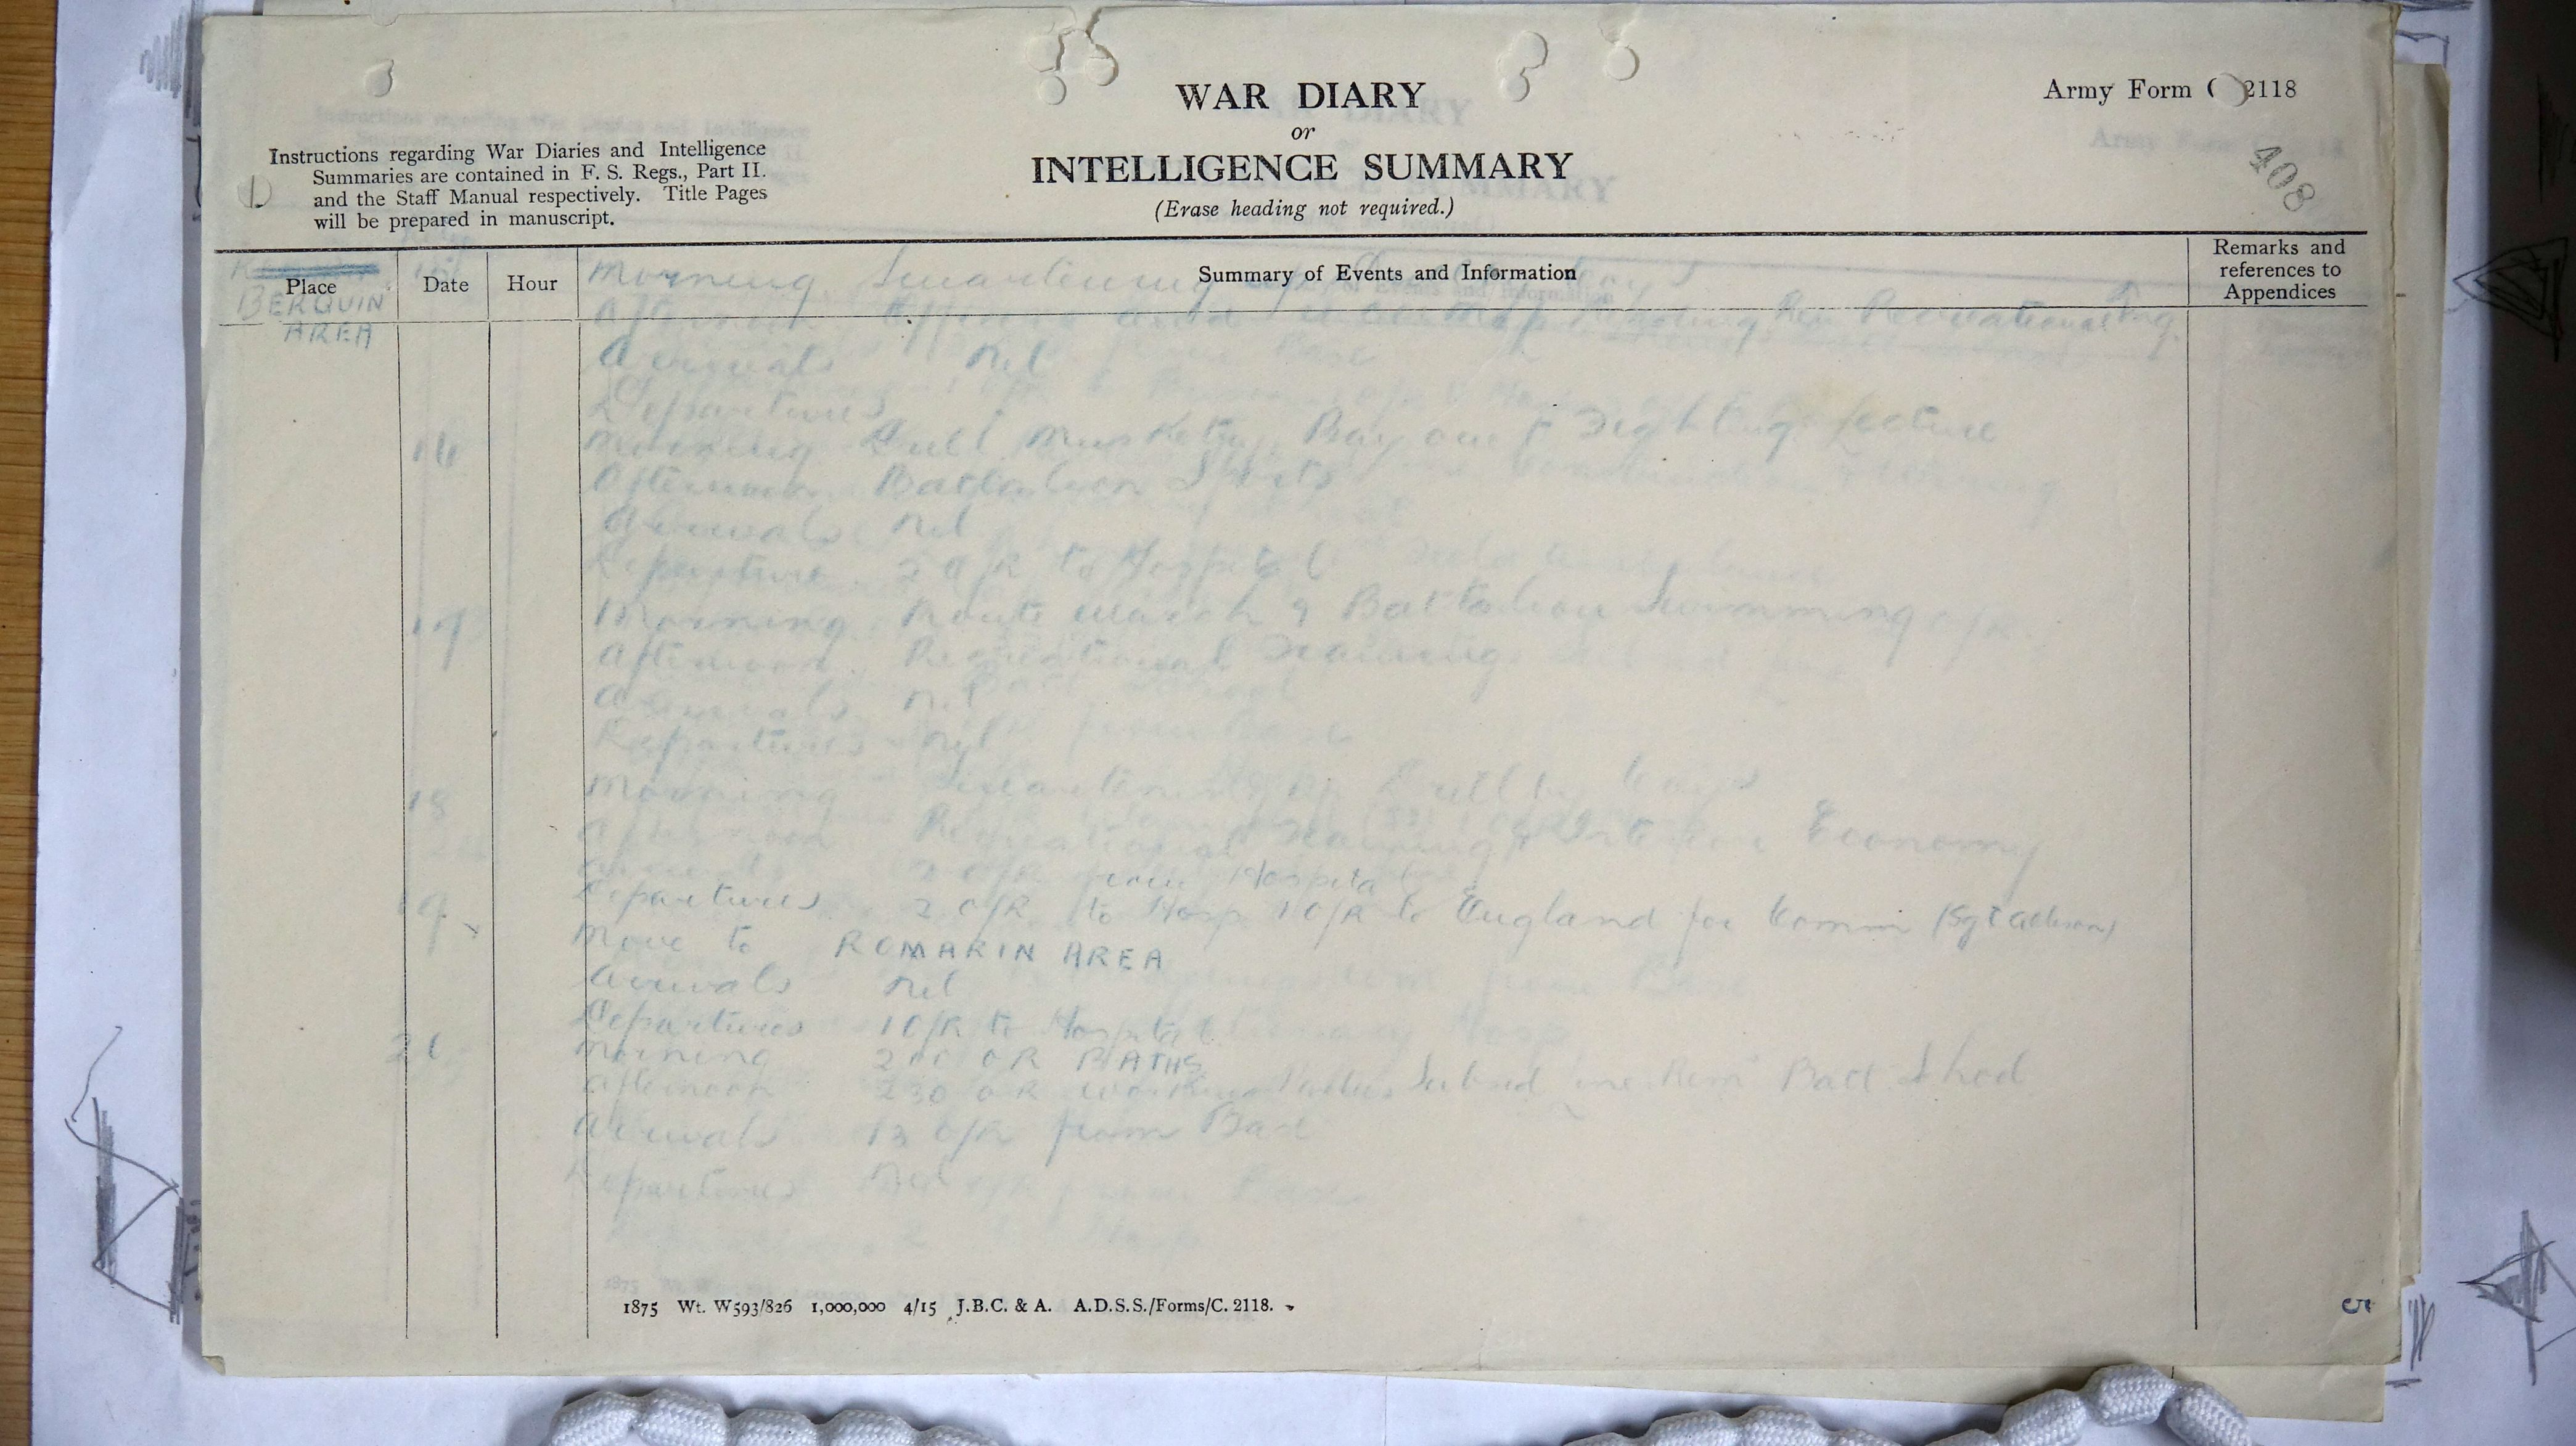 WAR DIARY
or
INTELLIGENCE SUMMARY
(Erase heading not required.)
Army Form C 2118
408
Instructions regarding War Diaries and Intelligence
Summaries are contained in F. S. Regs., Part II.
and the Staff Manual respectively. Title Pages
will be prepared in manuscript.
Place Date Hour Summary of Events and Information Remarks and references to Appendices
BERQUIN
AREA
Morning Smartening up
Afternoon Map Reading Recreational Trng.
Arrivals Nil
Departures
16 Morning Drill Musketry, Bayonet Fighting Lecture
Afternoon Battalion Sports
Arrivals Nil
Departure 2 O/R to Hospital
17 Morning Route March & Battalion Swimming
Afternoon Recreational Training
Arrivals Nil
Departures Nil
18 Morning Smartening up Drill by Coys
Afternoon Recreational Training & Interior Economy
Arrivals 2 O/R from Hospital
Departures 2 O/R to Hosp 1 O/R to England for Comm (Sgt
19 Move to ROMARIN AREA
Arrivals Nil
Departures 1 O/R to Hospital
20 Morning 200 OR BATHS
Afternoon 230 OR Working Parties
Arrivals 13 O/R from Base
Departures Nil
1875 Wt. W593/826 1,000,000 4/15 J.B.C. & A. A.D.S.S./Forms/C. 2118.
5